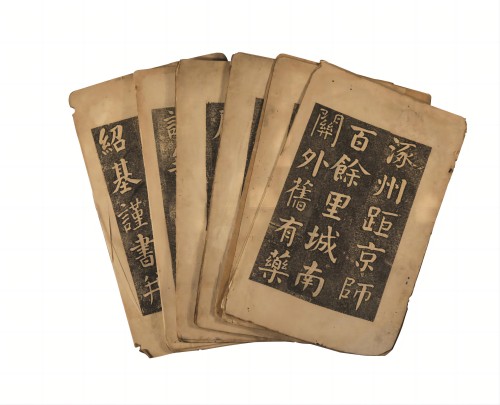 涿州距京師
百餘里城南
關外舊有藥
紹基謹書并